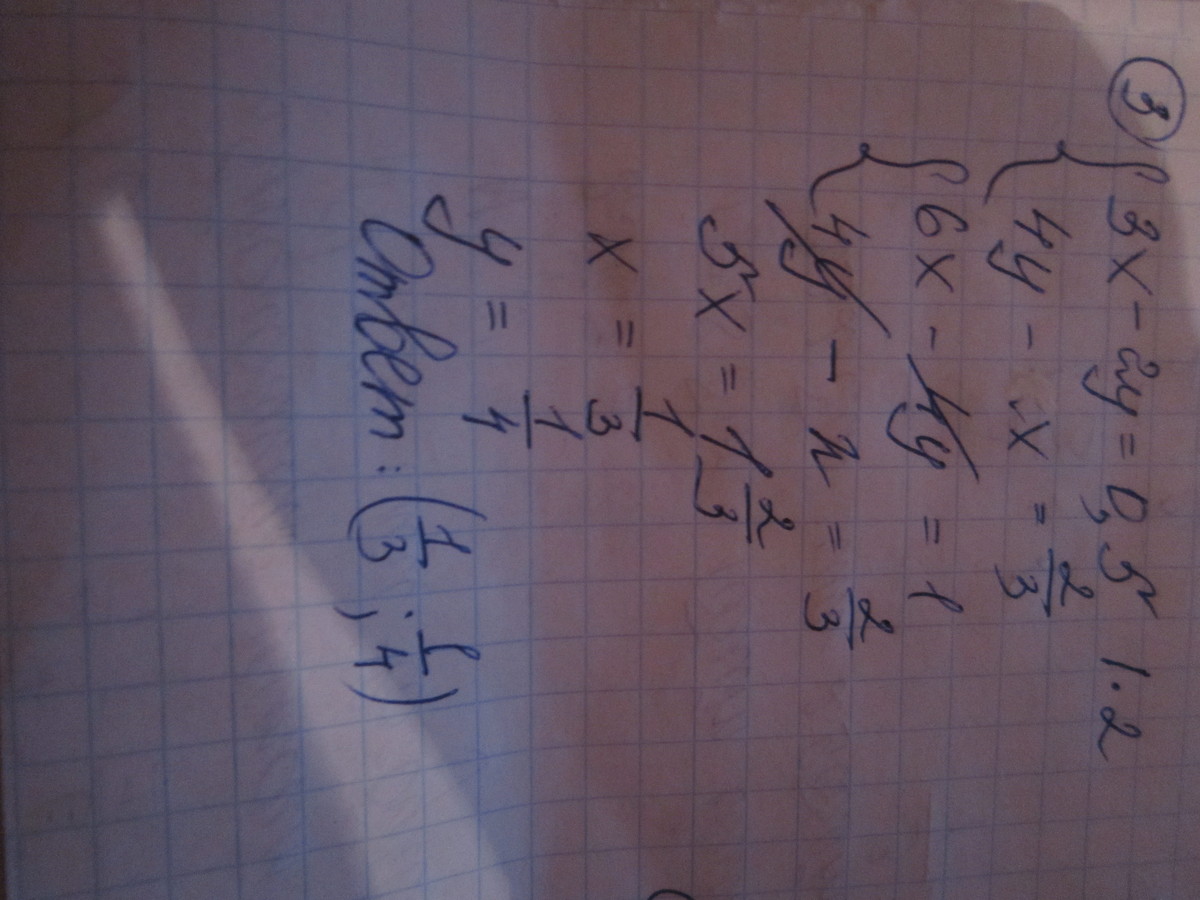 3
{ 3x - 2y = 0,5 | · 2
4y - x = 2/3
{ 6x - 4y = 1
4y - x = 2/3
5x = 1 2/3
x = 1/3
y = 1/4
Ответ: (1/3 ; 1/4)